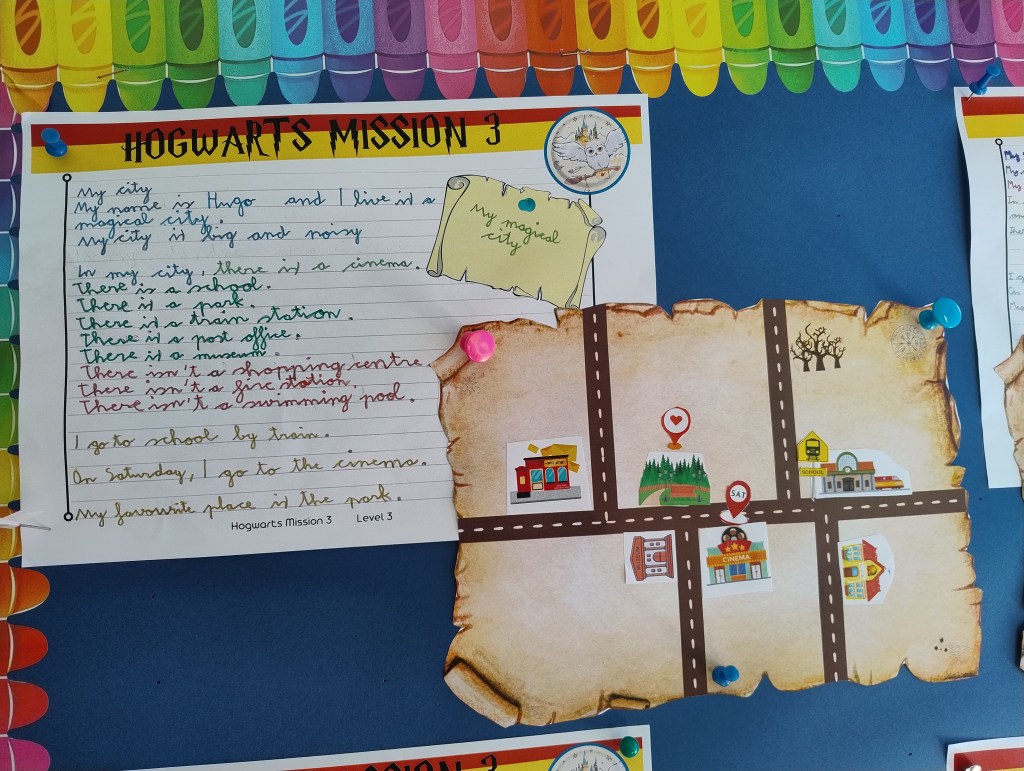 HOGWARTS MISSION 3
My city
My name is Hugo and I live is a
magical city.
My city is big and noisy
In my city, there is a cinema.
There is a school.
There is a park.
There is a train station.
There is a post office.
There is a museum.
There isn't a shopping centre.
There isn't a fire station.
There isn't a swimming pool.
I go to school by train.
On Saturday, I go to the cinema.
My favourite place is the park.
Hogwarts Mission 3 Level 3
My magical
city
SCHOOL
SAT
CINEMA
HOGWARTS MISSION 3